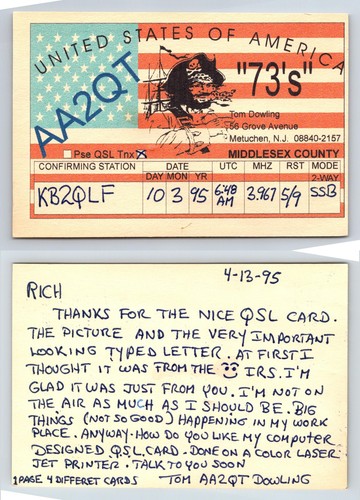 UNITED STATES OF AMERICA
AA2QT
"73's"
Tom Dowling
56 Grove Avenue
Metuchen, N.J. 08840-2157
Pse QSL Tnx X
MIDDLESEX COUNTY
CONFIRMING STATION DATE UTC MHZ RST MODE
DAY MON YR 2-WAY
KB2QLF 10 3 95 6:48 AM 3.967 5/9 SSB
4-13-95
RICH
THANKS FOR THE NICE QSL CARD.
THE PICTURE AND THE VERY IMPORTANT
LOOKING TYPED LETTER. AT FIRST I
THOUGHT IT WAS FROM THE IRS. I'M
GLAD IT WAS JUST FROM YOU. I'M NOT ON
THE AIR AS MUCH AS I SHOULD BE. BIG
THINGS (NOT SO GOOD) HAPPENING IN MY WORK
PLACE. ANYWAY-HOW DO YOU LIKE MY COMPUTER
DESIGNED QSL CARD-DONE ON A COLOR LASER
JET PRINTER. TALK TO YOU SOON
1 PAGE 4 DIFFERET CARDS TOM AA2QT DOWLING